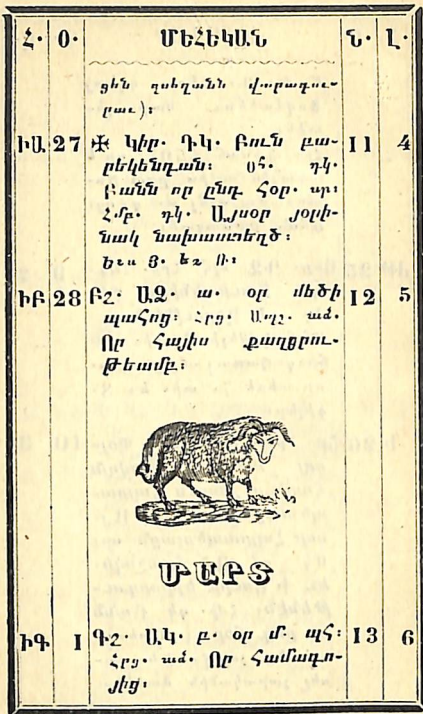 Հ· Օ· ՄԵՀԵԿԱՆ Ն· Լ·
ցեն զսեղանն վարագու-
րաւ)։
ԻԱ 27 ✠ Կիր· ԴԿ· Բուն բա- 11 4
րեկենդան։ օհ· դկ·
Բանն որ ընդ Հօր· սր։
Հմբ· դկ· Այսօր յօրի-
նակ նախաստեղծ։
ԻԲ 28 Բշ· ԱՁ· ա· օր մեծի 12 5
պահոց։ Հրց· Առչ· ած·
Որ Հայիս քաղցրու-
թեամբ։
ՄԱՐՏ
ԻԳ 1 Գշ· ԱԿ· բ· օր մ· պՀ։ 13 6
Հրց· ած· Որ Համագո-
յից։